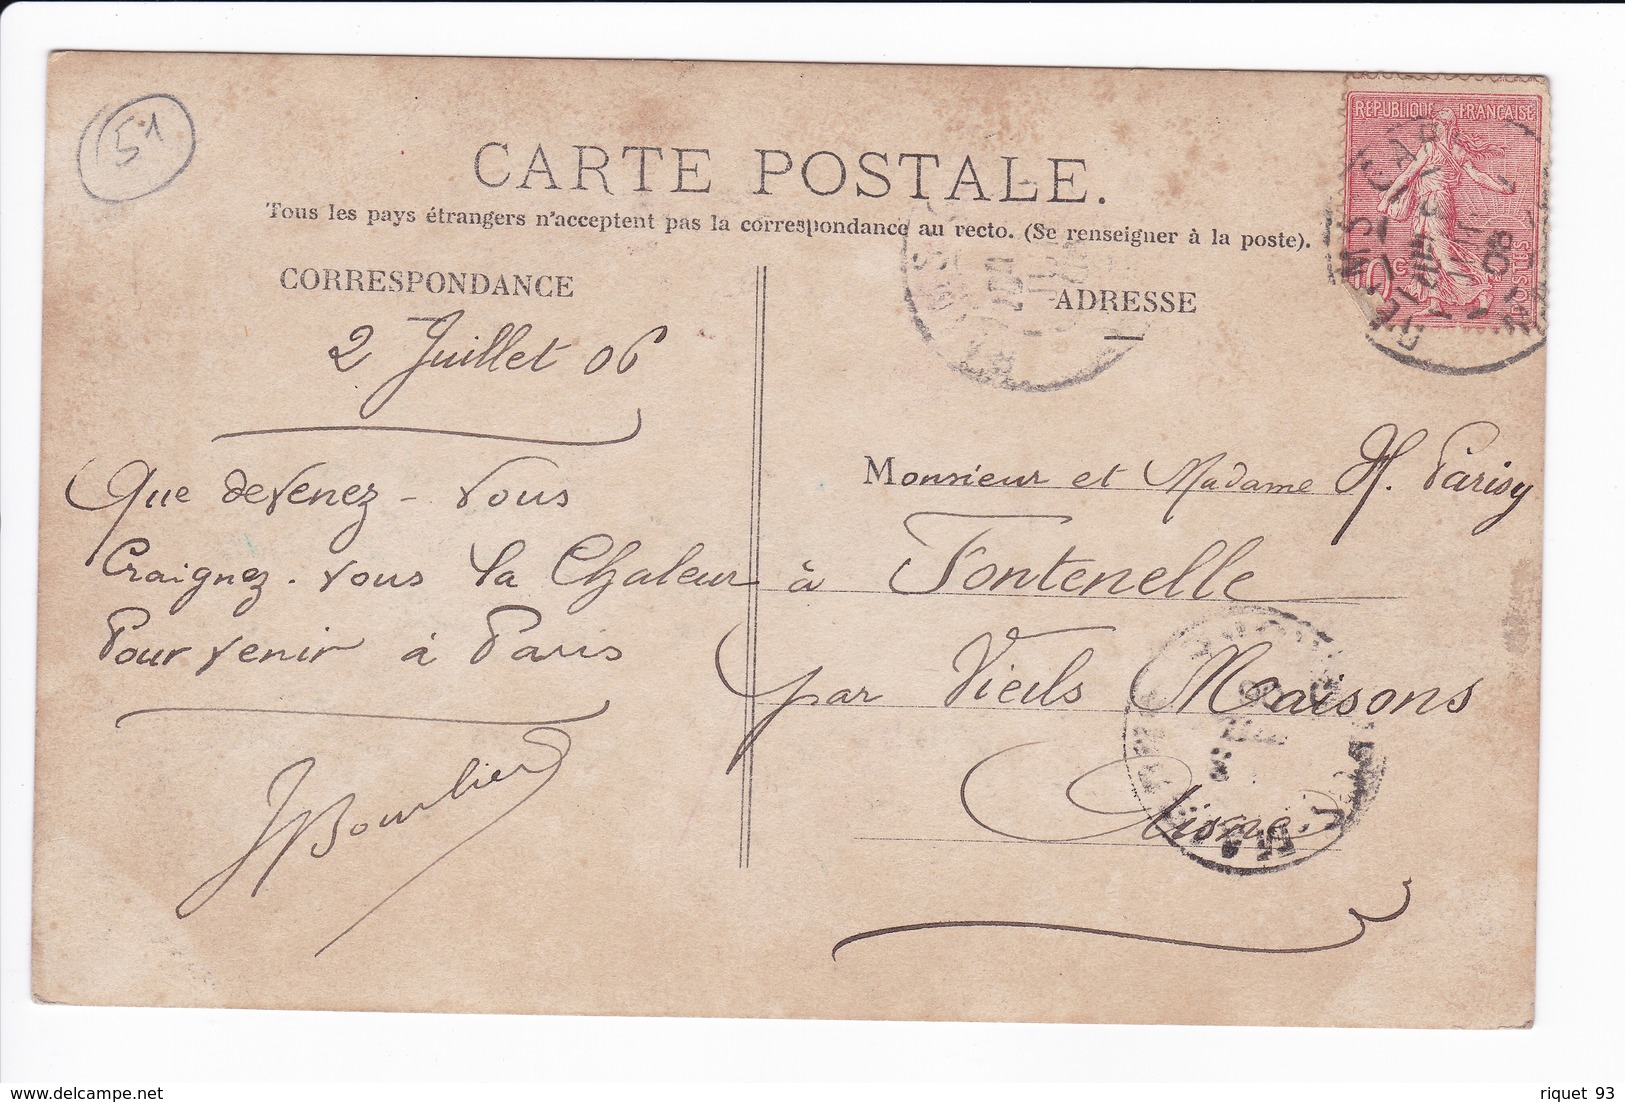 51
CARTE POSTALE.
Tous les pays étrangers n'acceptent pas la correspondance au recto. (Se renseigner à la poste).
RÉPUBLIQUE FRANÇAISE
10c
POSTES
CORRESPONDANCE
2 Juillet 06
Que devenez-vous
Craignez-vous la Chaleur
Pour venir à Paris
JBourlier
ADRESSE
Monsieur et Madame H. Parisy
à Fontenelle
par Vieils Maisons
Aisne
riquet 93